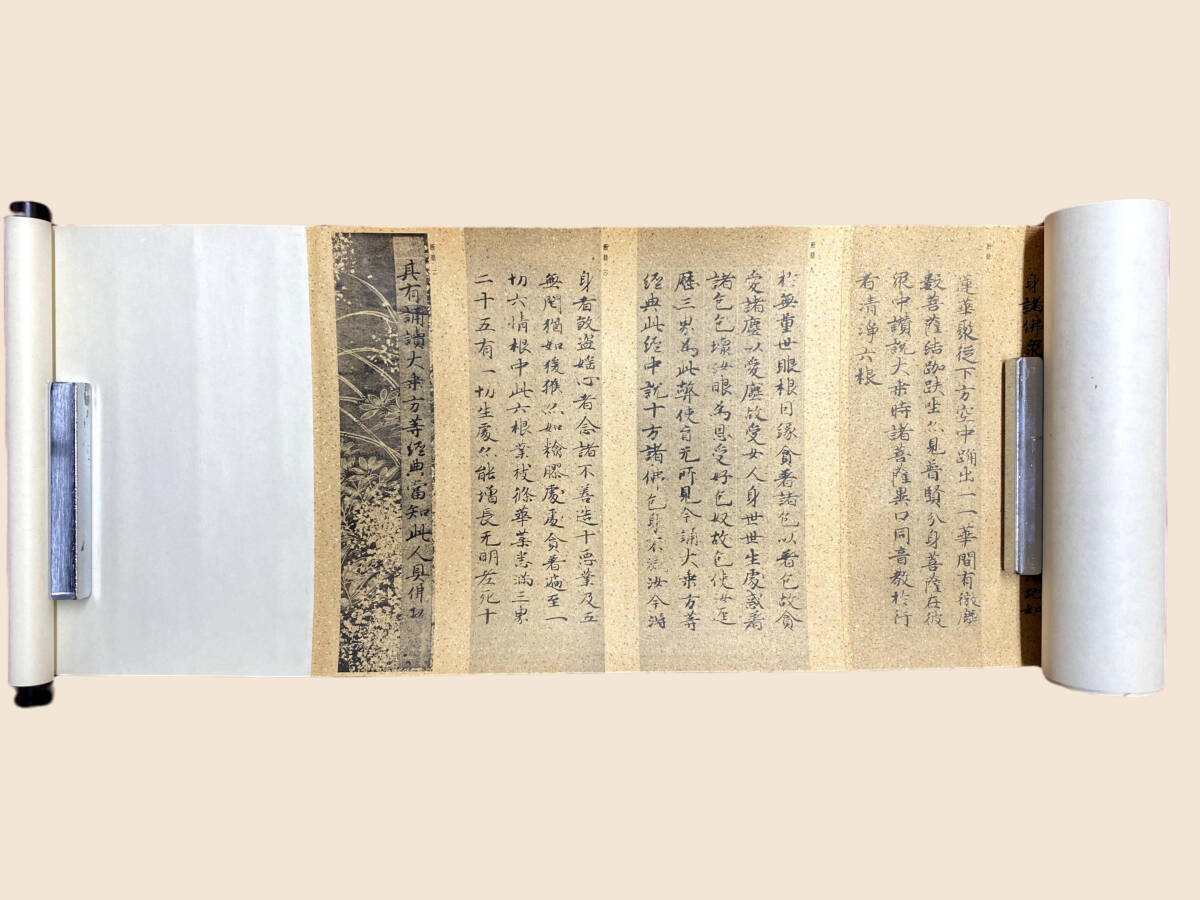 蓮華聚從下方空中踊出一一華間有微塵
數菩薩結跏趺坐亦見普賢分身菩薩在彼
衆中讃説大乗時諸菩薩異口同音教於行
者清浄六根
断簡 九
於無量世眼根因縁貪著諸色以著色故貪
愛諸塵以愛塵故受女人身世世生處惑著
諸色色壞汝眼為恩愛奴色奴故色使汝逕
歴三界為此弊使盲无所見今誦大乗方等
經典此經中説十方諸佛色身不滅汝今得
断簡 六
身者殺盗婬心者念諸不善造十惡業及五
無間猶如猨猴亦如黐膠處處貪著遍至一
切六情根中此六根業枝條華葉悉満三界
二十五有一切生處亦能増長无明老死十
其有誦讀大乗方等經典當知此人具佛功